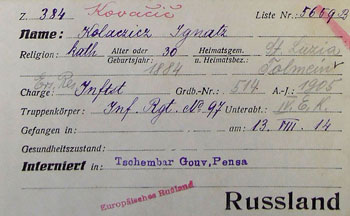 Z 384 Kovačič Liste Nr. 5669 B
Name: Kolaczicz Ignatz
Religion: kath Alter oder Geburtsjahr: 30 1884 Heimatsgem. u. Heimatsbez. St. Luzia Tolmein
Charge: Inftst Grdb.-Nr.: 514 A.-J.: 1905
Truppenkörper: Inf. Rgt. No. 97 Unterabt. IV. E. K.
Gefangen in am: 13. VIII. 14
Gesundheitszustand:
Interniert in: Tschembar Gouv, Pensa
Europäisches Rußland
Russland